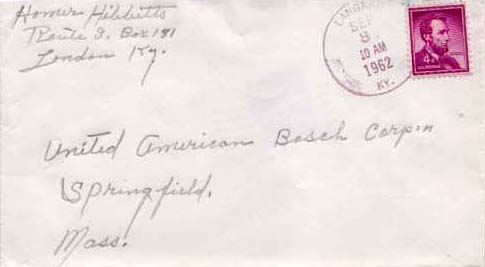 Homer Hibbetts
Route 3. Box 181
London Ky.
SEP
8
10 AM
1962
KY.
4¢
United American Bosch Corpn
Springfield,
Mass.